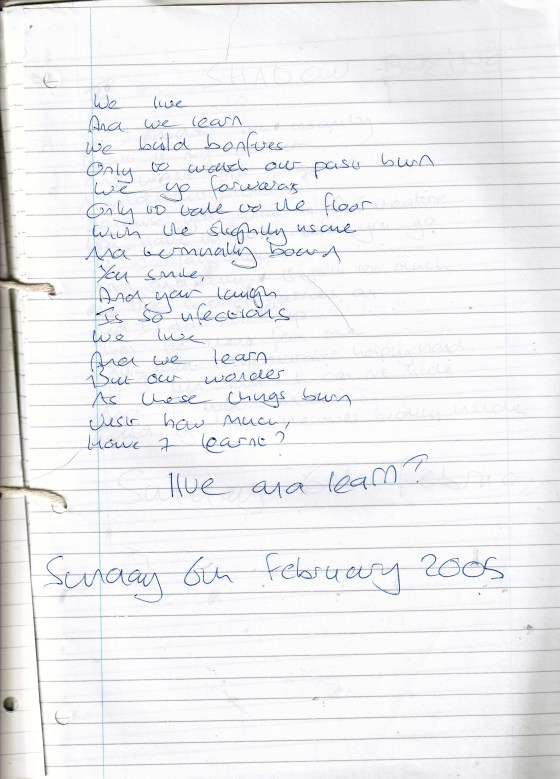 We live
And we learn
We build bonfires
Only to watch our past burn
We go forwards
Only to take to the floor
With the slightly insane
And terminally bored
You smile,
And your laugh
Is so infectious
We live
And we learn
But our wonder
As these things burn
Just how much,
Have I learnt?
live and learn?
Sunday 6th February 2005